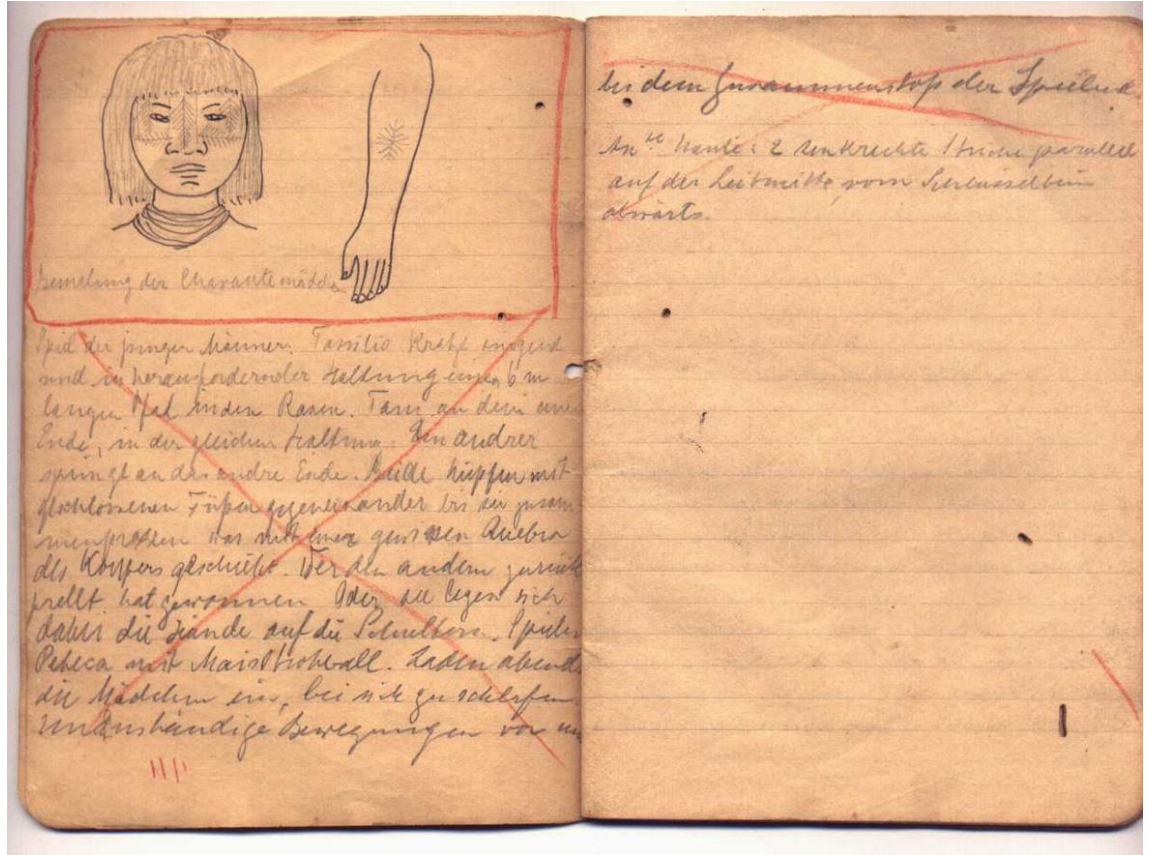 Bemalung der Charantemädchen
Spiel der junger Männer. Tansilio Krahf singend
und in herausfordernder Haltung einen 6 m
langen Pfal in den Rasen. Tanz an dem einen
Ende, in der gleichen Haltung. Ein andrer
springt an das andre Ende. Beide hüpfen mit
geschlossenen Füßen gegeneinander bis sie zusam-
menprallen was mit einer gewissen Quebra
des Körpers geschieht. Wer den andern zurück
prellt hat gewonnen Oder sie legen sich
dabei die Hände auf die Schultern. Spielen
Peteca mit Maisstrohball. Laden abends
die Mädchen ein, bei sich zu schlafen
Unanständige Bewegungen vor und
bei dem Zusammenstoß der Spielend
Leute: 2 senkrechte Striche parallel
auf der Leibmitte, vom Schlüsselbein
abwärts.